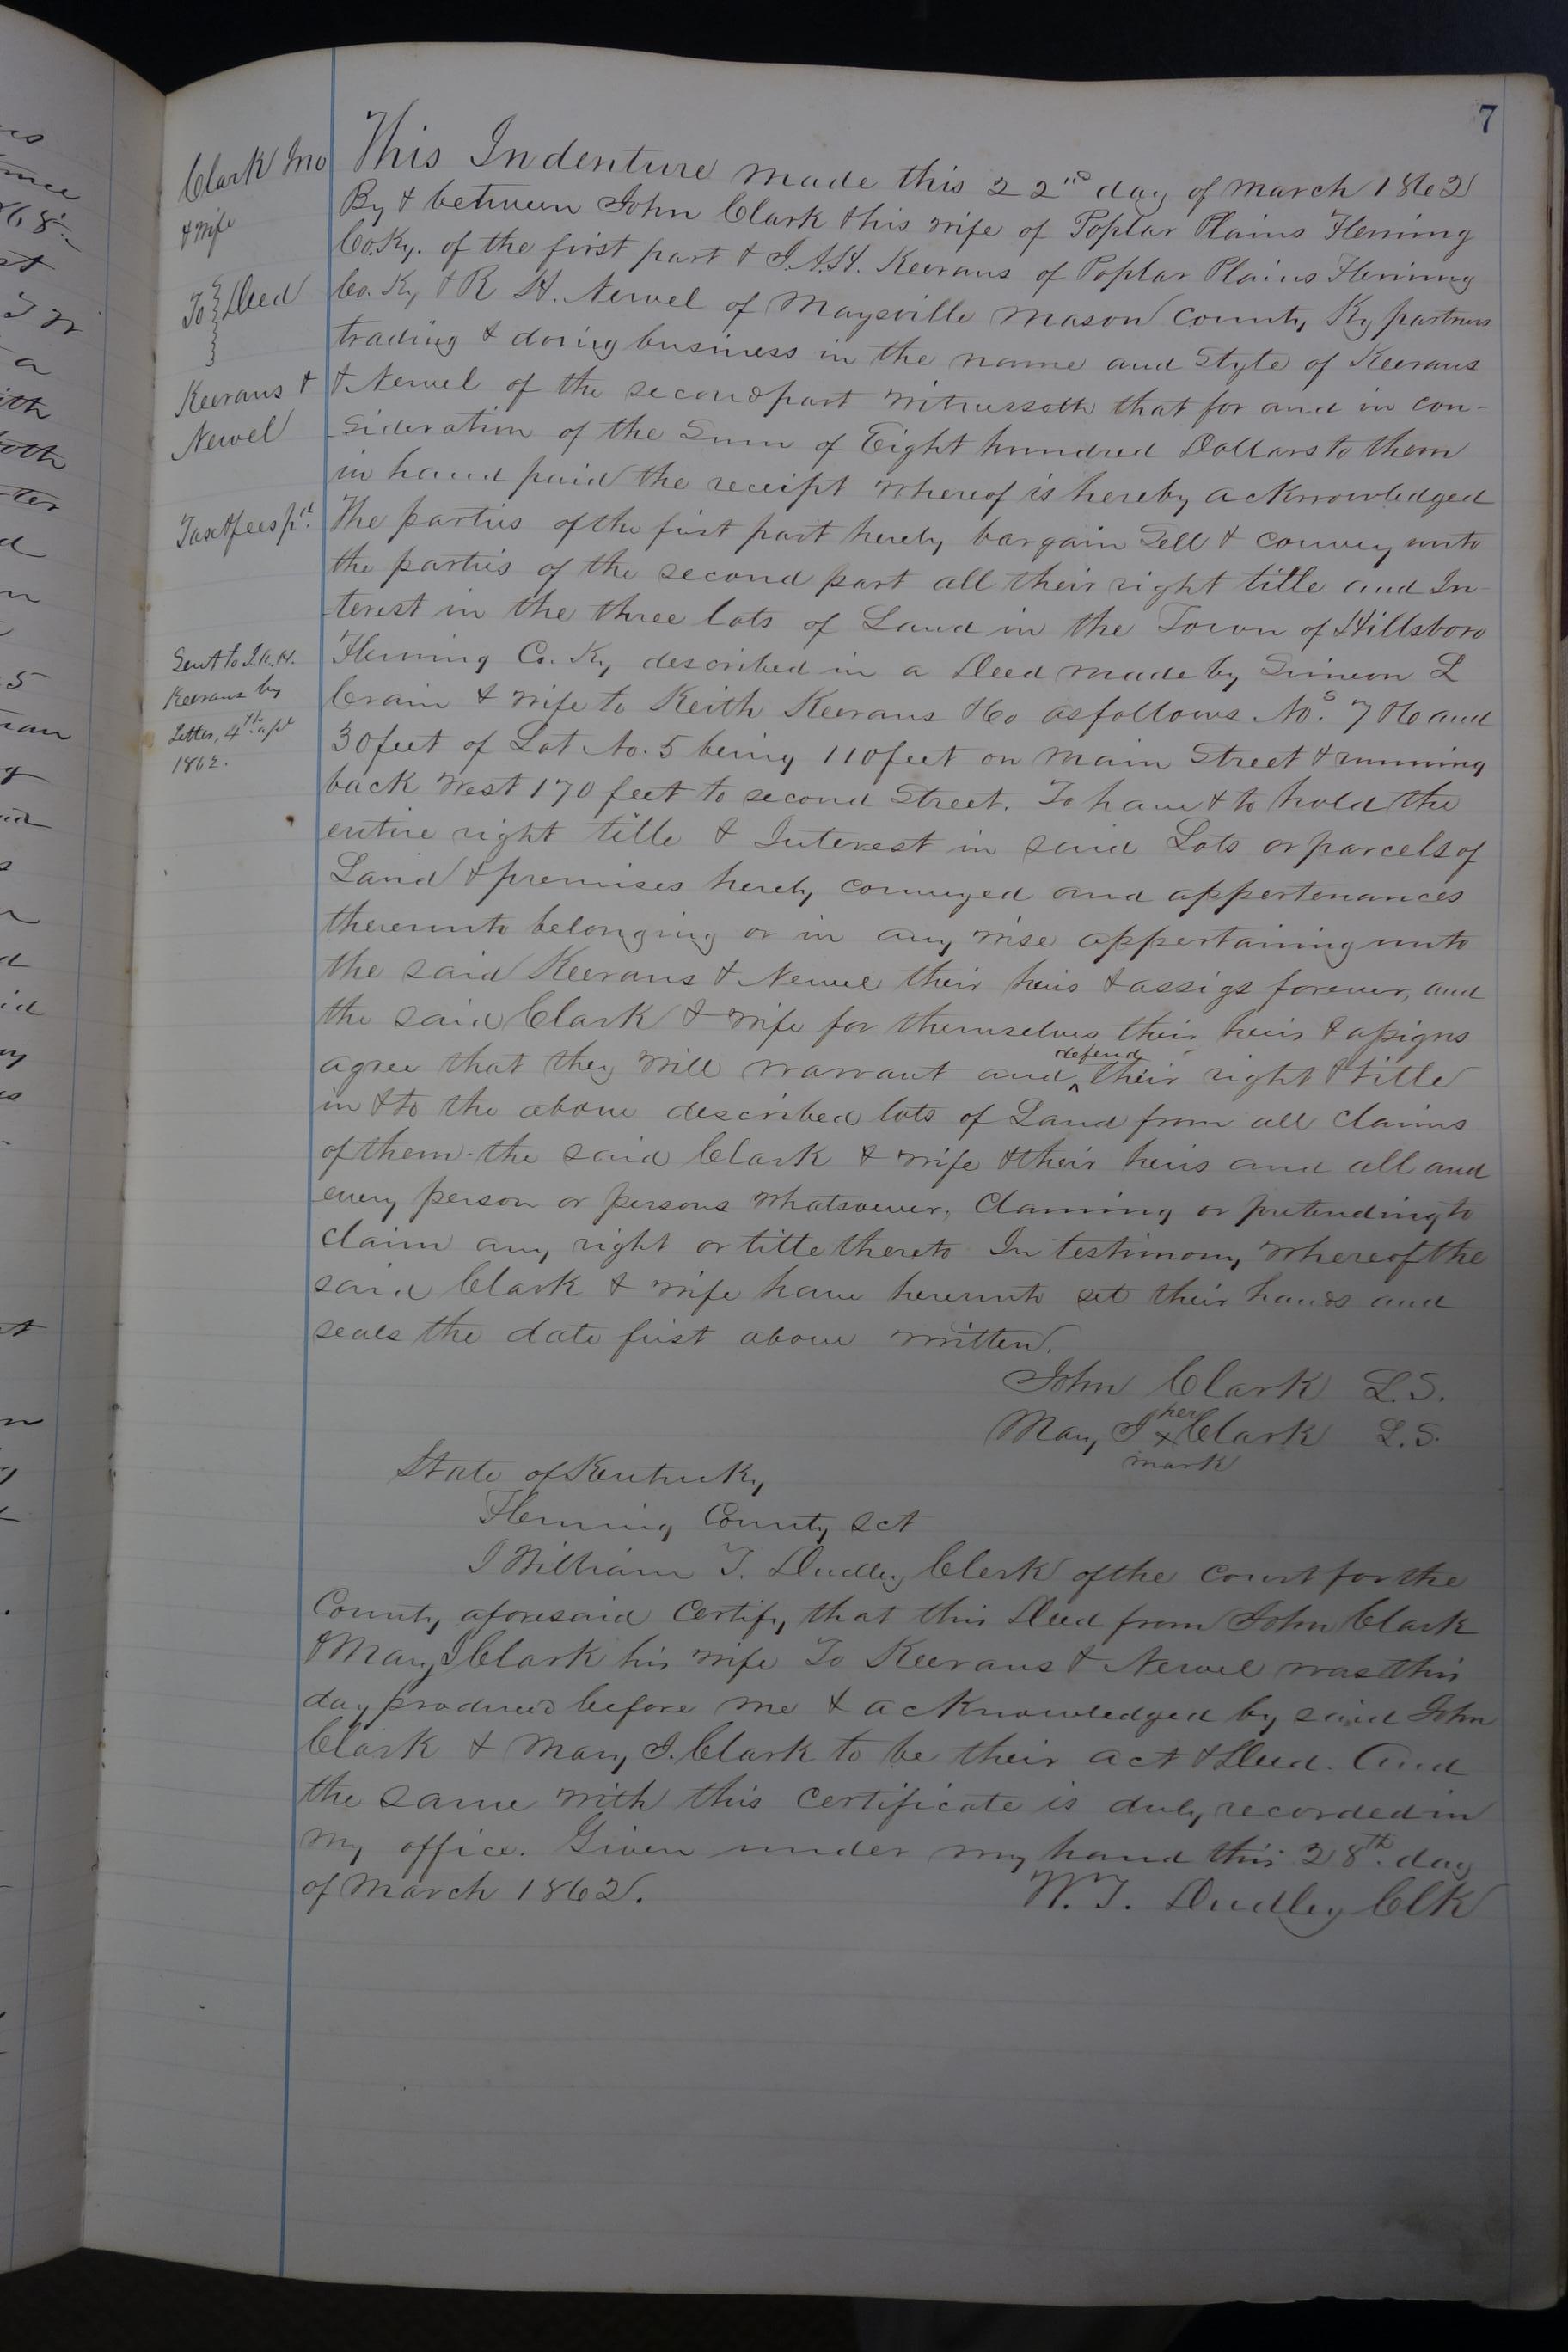 7
Clark Jno
& wife
To } Deed
Keerans &
Newel
Tax & fees pd.
Sent to J. A. H.
Keerans by
Letter, 4th apl
1862.
This Indenture made this 22nd day of March 1862
By & between John Clark & his wife of Poplar Plains Fleming
Co. Ky. of the first part & J. A. H. Keerans of Poplar Plains Fleming
Co. Ky & R H. Newel of Maysville Mason County Ky partners
trading & doing business in the name and Style of Keerans
& Newel of the second part witnesseth that for and in con-
sideration of the Sum of Eight hundred Dollars to them
in hand paid the receipt whereof is hereby acknowledged
The parties of the first part hereby bargain Sell & convey unto
the parties of the second part all their right title and In-
terest in the three lots of Land in the Town of Hillsboro
Fleming Co. Ky described in a Deed made by Simeon L
Crain & wife to Keith Keerans & Co as follows Nos. 7 & 6 and
30 feet of Lot No. 5 being 110 feet on main Street & running
back west 170 feet to second Street. To have & to hold the
entire right title & Interest in said Lots or parcels of
Land & premises hereby conveyed and appertenances
thereunto belonging or in any wise appertaining unto
the said Keerans & Newel their heirs & assigs forever, and
the said Clark & wife for themselves their heirs & assigns
agree that they will warrant and defend their right & title
in & to the above described lots of Land from all claims
of them the said Clark & wife & their heirs and all and
every person or persons whatsoever, Claiming or pretending to
claim any right or title thereto In testimony whereof the
said Clark & wife have hereunto set their hands and
seals the date first above written.
John Clark L.S.
Mary J her x mark Clark L.S.
State of Kentucky
Fleming County Sct
I William T. Dudley Clerk of the Court for the
County aforesaid Certify that this Deed from John Clark
& Mary J Clark his wife To Keerans & Newel was this
day produced before me & acknowledged by said John
Clark & Mary J. Clark to be their act & Deed. And
the same with this Certificate is duly recorded in
my office. Given under my hand this 28th. day
of March 1862.
W. T. Dudley Clk